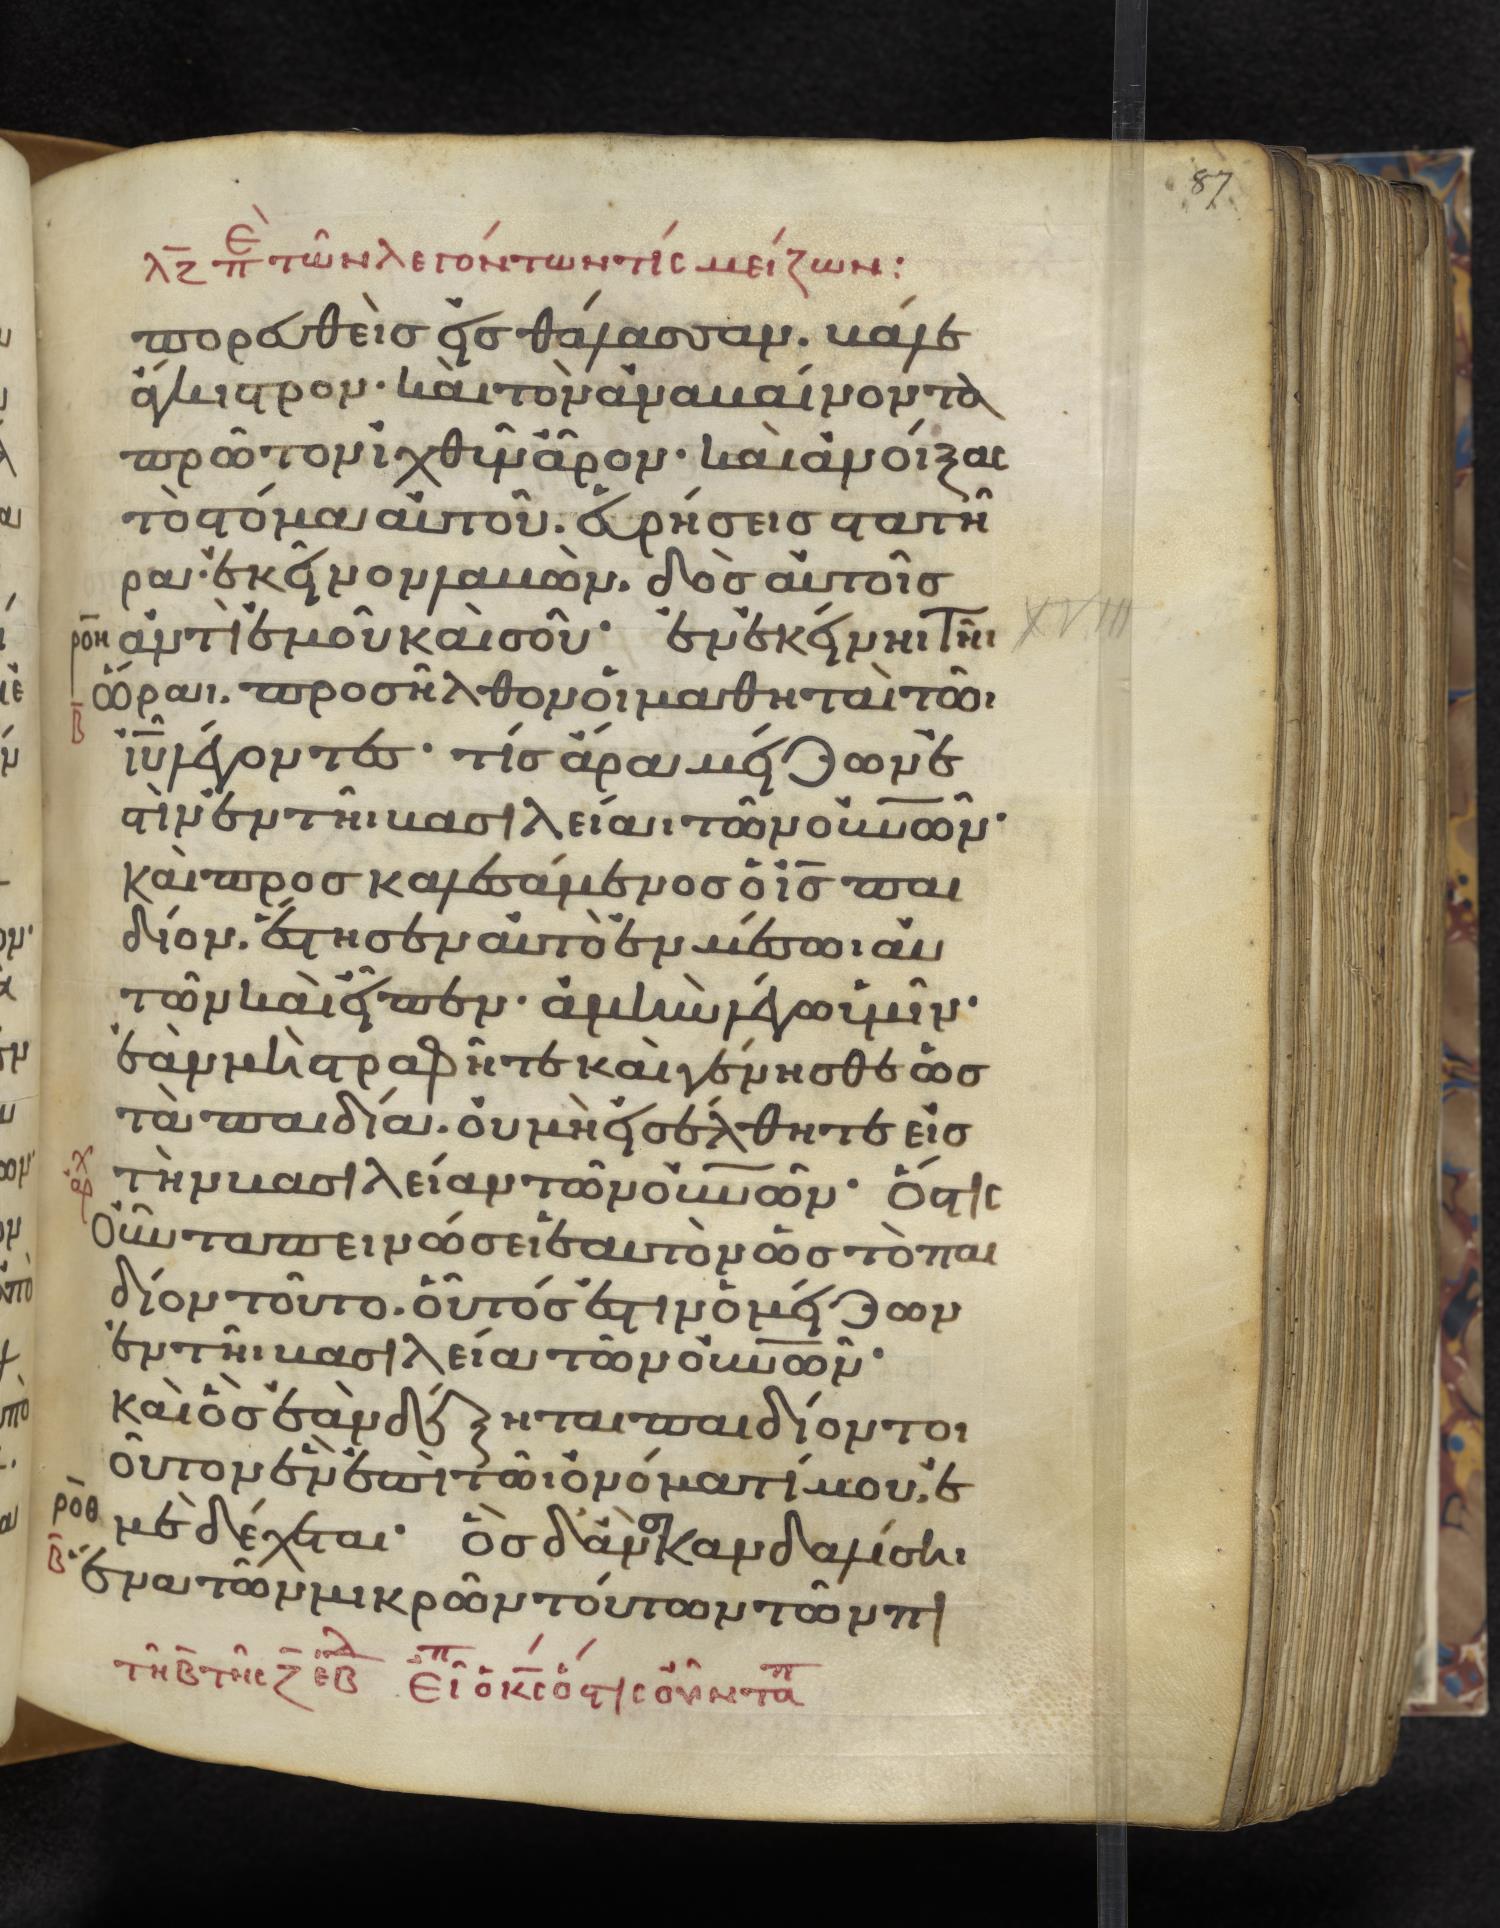 87
λζ πε τῶν λεγόντων τίς μείζων:
πορευθεὶς εἰς θάλασσαν. βάλε
ἄγκιστρον· καὶ τὸν ἀναβαίνοντα
πρῶτον ἰχθῦν ἆρον· καὶ ἀνοίξας
τὸ στόμα αὐτοῦ. εὑρήσεις στατῆ
ρα· ἐκεῖνον λαβὼν. δὸς αὐτοῖς
ρον̅ ἀντὶ ἐμοῦ καὶ σοῦ· ἐν ἐκείνηι τῆι
ὥραι. προσῆλθον οἱ μαθηταὶ τῶι
β̅
ἰῦ λέγοντες· τίς ἄρα μείζων ἐ
στὶν ἐν τῆι βασιλείαι τῶν οὐνῶν·
καὶ προσκαλεσάμενος ὁ ἰς παι
δίον. ἔστησεν αὐτὸ ἐν μέσωι αὐ
τῶν καὶ εἶπεν· ἀμὴν λέγω ὑμῖν·
ἐὰν μὴ στραφῆτε καὶ γένησθε ὡς
τὰ παιδία. οὐ μὴ εἰσέλθητε εἰς
ἀρχ
τὴν βασιλείαν τῶν οὐνῶν· Ὅστις
οὖν ταπεινώσει ἑαυτὸν ὡς τὸ παι
δίον τοῦτο. οὗτός ἐστιν ὁ μείζων
ἐν τῆι βασιλεία τῶν οὐνῶν·
καὶ ὃς ἐὰν δέξηται παιδίον τοι
οῦτον ἓν ἐπὶ τῶι ὀνόματί μου. ἐ
ροθ μὲ δέχεται· ὃς δ' ἂν σκανδαλίσηι
β̅ ἕνα τῶν μικρῶν τούτων τῶν πι
τῆ β̅ τῆς ζ̅ ἑβ̅δ εἶπ ὁ κς ὅστις οὖν ταπ
XVIII